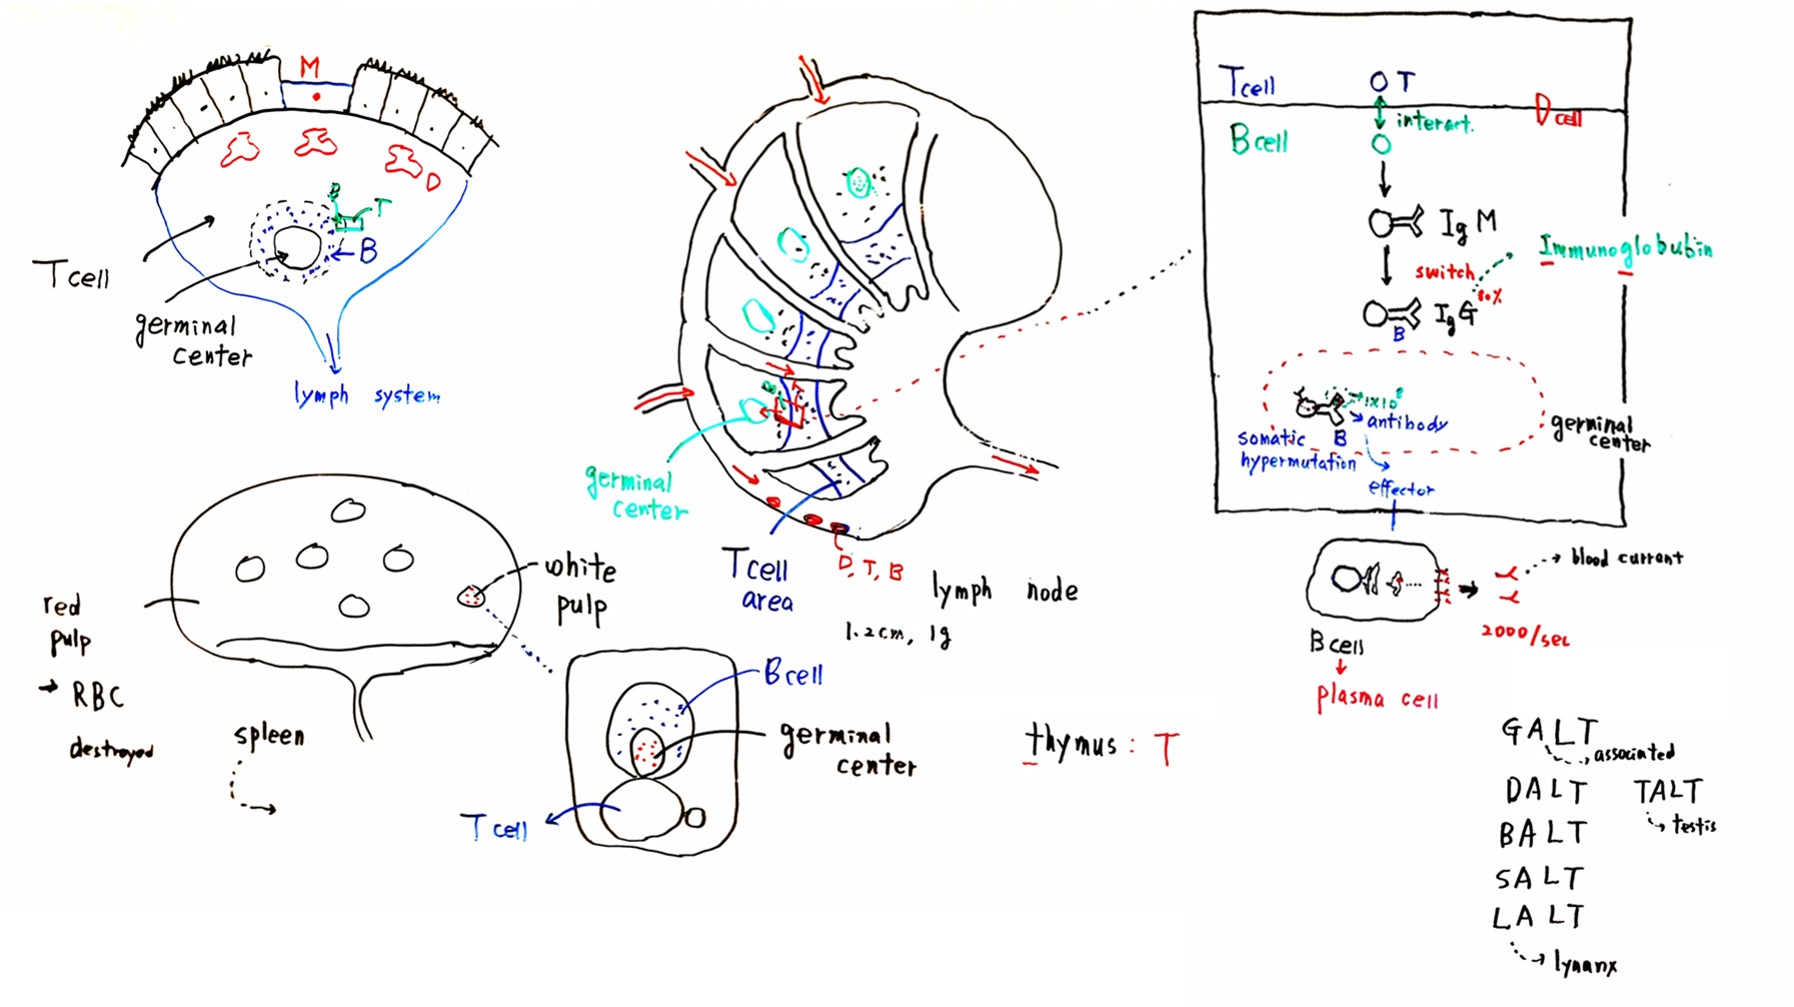 M
D
B
T
B
T cell
germinal
center
lymph system
red
pulp
→ RBC
destroyed
spleen
white
pulp
B cell
germinal
center
T cell
B
T
germinal
center
T cell
area
D, T, B
lymph node
1.2cm, 1g
thymus : T
T cell
T
interact.
D cell
B cell
IgM
switch
80%
Immunoglobubin
IgG
B
1×10⁸
antibody
somatic
B
hypermutation
germinal
center
effector
blood currant
2000/sec
B cell
↓
plasma cell
GALT
associated
DALT
TALT
testis
BALT
SALT
LALT
lynanx